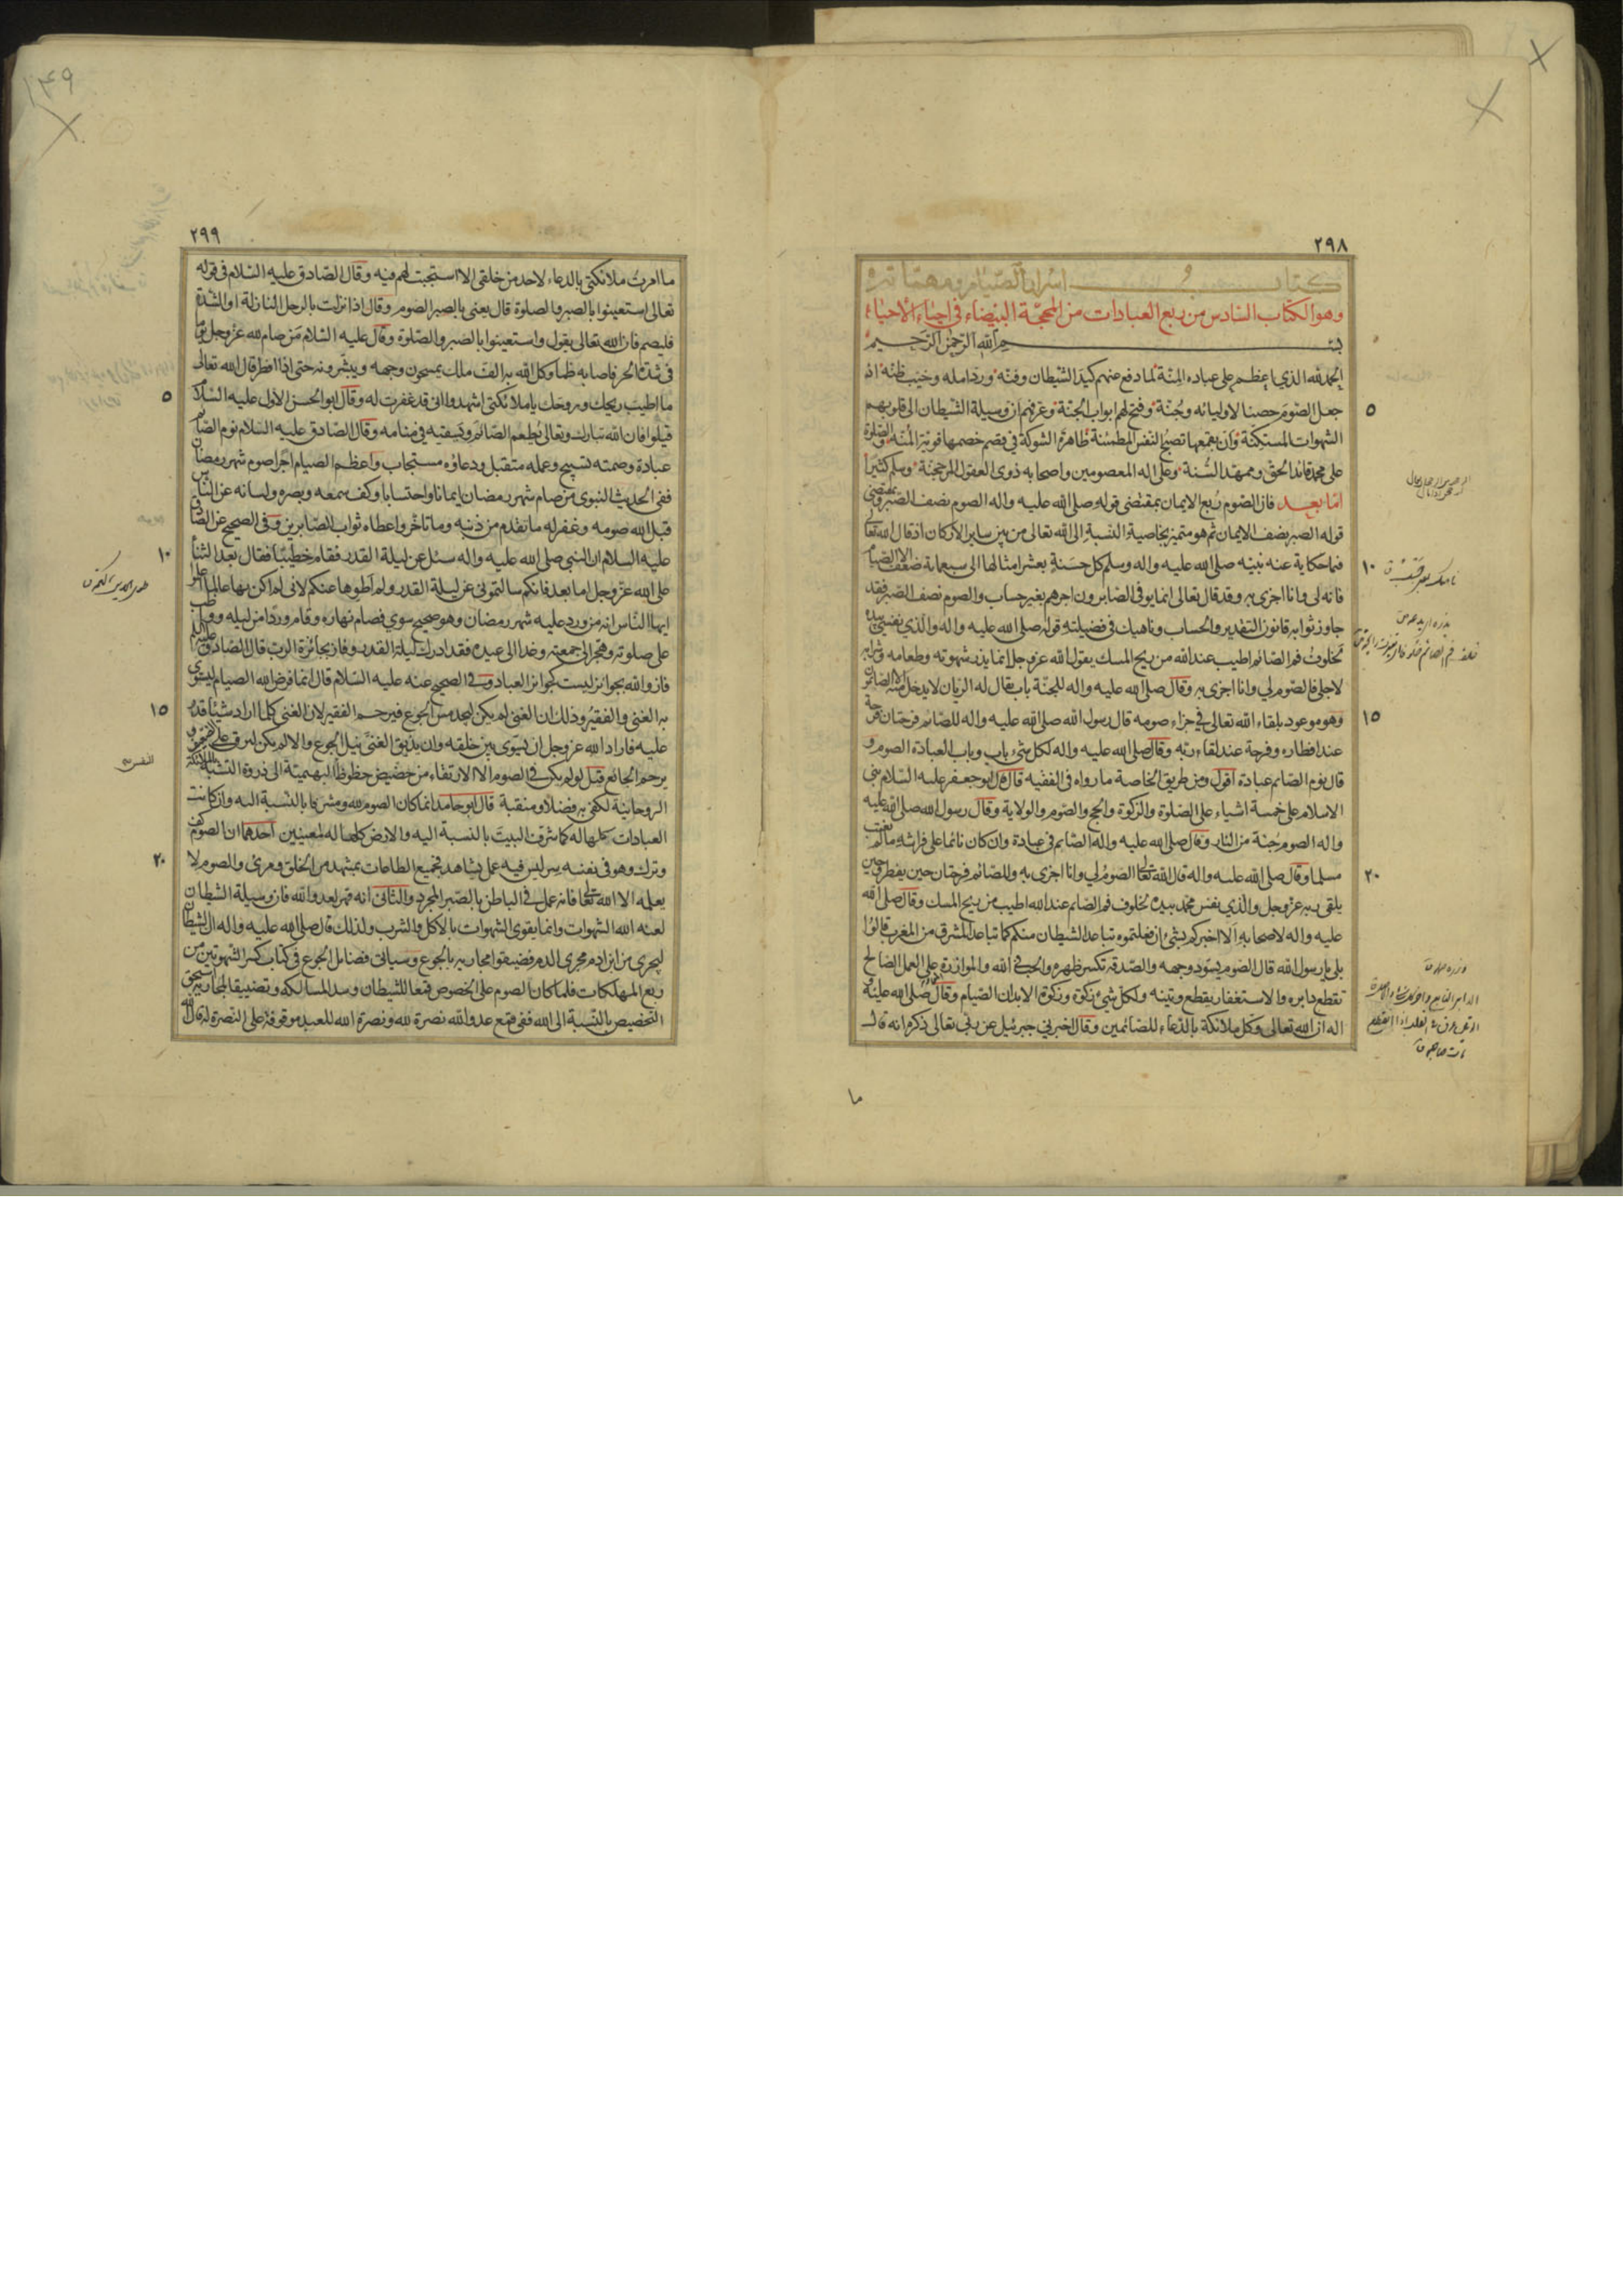 ٢٩٨
كتاب اسرار الصيام ومهماته
وهو الكتاب السادس من ربع العبادات من المحجة البيضاء في احياء الاحياء
بسم الله الرحمن الرحيم
الحمد لله الذي اعظم على عباده المنة لما دفع عنهم كيد الشيطان وفنه ورد امله وخيب ظنه اذ
جعل الصوم حصنا لاوليائه وجنة وفتح لهم ابواب الجنة وعرفهم ان وسيلة الشيطان الى قلوبهم
الشهوات المستكنة وان بقمعها تصبح النفس المطمئنة ظاهرة الشوكة في قصم خصمها قوية المنة والصلوة
على محمد قائد الحق وممهد السنة وعلى اله المعصومين واصحابه ذوى العقول المرجحنة وسلم كثيرا
اما بعد فان الصوم ربع الايمان بمقتضى قوله صلى الله عليه واله الصوم نصف الصبر وبمقتضى
قوله الصبر نصف الايمان ثم هو متميز بخاصية النسبة الى الله تعالى من بين ساير الاركان اذ قال الله تعالى
فيما حكاية عنه نبيه صلى الله عليه واله وسلم كل حسنة بعشر امثالها الى سبعماية ضعف الا الصيام
فانه لى وانا اجزى به وقد قال تعالى انما يوفى الصابرون اجرهم بغير حساب والصوم نصف الصبر فقد
جاوز ثوابه قانون التقدير والحساب وناهيك في فضيلته قوله صلى الله عليه واله والذي نفسي بيده
لخلوف فم الصائم اطيب عند الله من ريح المسك يقول الله عز وجل انما يذر شهوته وطعامه وشرابه
لاجلى فالصوم لي وانا اجزى به وقال صلى الله عليه واله للجنة باب يقال له الريان لا يدخل منه الا الصائمون
وهو موعود بلقاء الله تعالى في جزاء صومه قال رسول الله صلى الله عليه واله للصائم فرحتان فرحة
عند افطاره وفرحة عند لقاء ربه وقال صلى الله عليه واله لكل شيء باب وباب العبادة الصوم و
قال نوم الصائم عبادة اقول ومن طريق الخاصة ما رواه في الفقيه قال قال ابو جعفر عليه السلام بني
الاسلام على خمسة اشياء على الصلوة والزكوة والحج والصوم والولاية وقال رسول الله صلى الله عليه
واله الصوم جنة من النار وقال صلى الله عليه واله الصائم في عبادة وان كان نائما على فراشه ما لم يغتب
مسلما وقال صلى الله عليه واله قال الله تعالى الصوم لي وانا اجزى به وللصائم فرحتان حين يفطر وحين
يلقى ربه عز وجل والذي نفس محمد بيده لخلوف فم الصائم عند الله اطيب من ريح المسك وقال صلى الله
عليه واله لاصحابه الا اخبركم بشيء ان فعلتموه تباعد الشيطان منكم كما تباعد المشرق من المغرب قالوا
بلى يا رسول الله قال الصوم يسود وجهه والصدقة تكسر ظهره والحب في الله والموازرة على العمل الصالح
تقطع دابره والاستغفار يقطع وتينه ولكل شيء زكوة وزكوة الابدان الصيام وقال صلى الله عليه و
اله ان الله تعالى وكل ملائكة بالدعاء للصائمين وقال اخبرني جبرئيل عن ربي تعالى ذكره انه قال
ما
٥
١٠
١٥
٢٠
١٤٩
٢٩٩
ما امرت ملائكتي بالدعاء لاحد من خلقى الا استجبت لهم فيه وقال الصادق عليه السلام في قوله
تعالى استعينوا بالصبر والصلوة قال يعني بالصبر الصوم وقال اذا نزلت بالرجل النازلة او الشدة
فليصم فان الله تعالى يقول واستعينوا بالصبر والصلوة وقال عليه السلام من صام لله عز وجل يوما
في شدة الحر فاصابه ظمأ وكل الله به الف ملك يمسحون وجهه ويبشرونه حتى اذا افطر قال الله تعالى
ما اطيب ريحك وروحك يا ملائكتي اشهدوا اني قد غفرت له وقال ابو الحسن الاول عليه السلام
قيلوا فان الله تبارك وتعالى يطعم الصائم ويسقيه في منامه وقال الصادق عليه السلام نوم الصائم
عبادة وصمته تسبيح وعمله متقبل ودعاؤه مستجاب واعظم الصيام اجرا صوم شهر رمضان
ففي الحديث النبوي من صام شهر رمضان ايمانا واحتسابا وكف سمعه وبصره ولسانه عن الناس
قبل الله صومه وغفر له ما تقدم من ذنبه وما تأخر واعطاه ثواب الصابرين وفي الصحيح عن الصادق
عليه السلام ان النبي صلى الله عليه واله سئل عن ليلة القدر فقام خطيبا فقال بعد الثناء
على الله عز وجل اما بعد فانكم سالتموني عن ليلة القدر ولم اطوها عنكم لاني لم اكن بها عالما اعلموا
ايها الناس انه من ورد عليه شهر رمضان وهو صحيح سوي فصام نهاره وقام وردا من ليله وواظب
على صلوته وهجر الى جمعته وغدا الى عيده فقد ادرك ليلة القدر وفاز بجائزة الرب قال الصادق عليه السلام
فازوا والله بجوائز ليست كجوائز العباد وفي الصحيح عنه عليه السلام قال انما فرض الله الصيام ليستوي
به الغني والفقير وذلك ان الغني لم يكن ليجد مس الجوع فيرحم الفقير لان الغني كلما اراد شيئا قدر
عليه فاراد الله عز وجل ان يسوى بين خلقه وان يذيق الغني نيل الجوع والالم ليرق على الضعيف و
يرحم الجائع قيل لو لم يكن في الصوم الا الارتقاء من حضيض حظوظ البهيمية الى ذروة التشبه بالملائكة
الروحانية لكفى به فضلا ومنقبة قال ابو حامد انما كان الصوم لله ومشرفا بالنسبة اليه وان كانت
العبادات كلها له كما شرف البيت بالنسبة اليه والارض كلها له لمعنيين احدهما ان الصوم كف
وترك وهو في نفسه سر ليس فيه عمل يشاهد فجميع الطاعات بمشهد من الخلق ومرئ والصوم لا
يعلمه الا الله تعالى فانه عمل في الباطن بالصبر المجرد والثاني انه قهر لعدو الله فان وسيلة الشيطان
لعنه الله الشهوات وانما يقوى الشهوات بالاكل والشرب ولذلك قال صلى الله عليه واله ان الشيطان
ليجري من ابن ادم مجرى الدم فضيقوا مجاريه بالجوع وسياتي فضائل الجوع في كتاب كسر الشهوتين من
ربع المهلكات فلما كان الصوم على الخصوص قمعا للشيطان وسدا لمسالكه وتضييقا لمجاريه استحق
التخصيص بالنسبة الى الله ففي قمع عدو الله نصرة لله ونصرة الله للعبد موقوفة على النصرة له قال الله
٥
١٠
١٥
٢٠